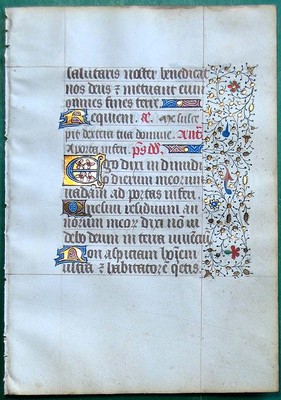 salutaris noster benedicat
nos deus ⁊ metuant eum
omnes fines terre
Requiem. a. Me susce
pit dextera tua domine. Ant
A porta inferi. ps
Ego dixi in dimidi
o dierum meorum
uadam ad portas inferi.
Quesiui residuum an
norum meoꝝ dixi nō ui
debo deum in terra uiuenciū
Non aspiciam hoīem
ultra ⁊ habitatorē qetis.